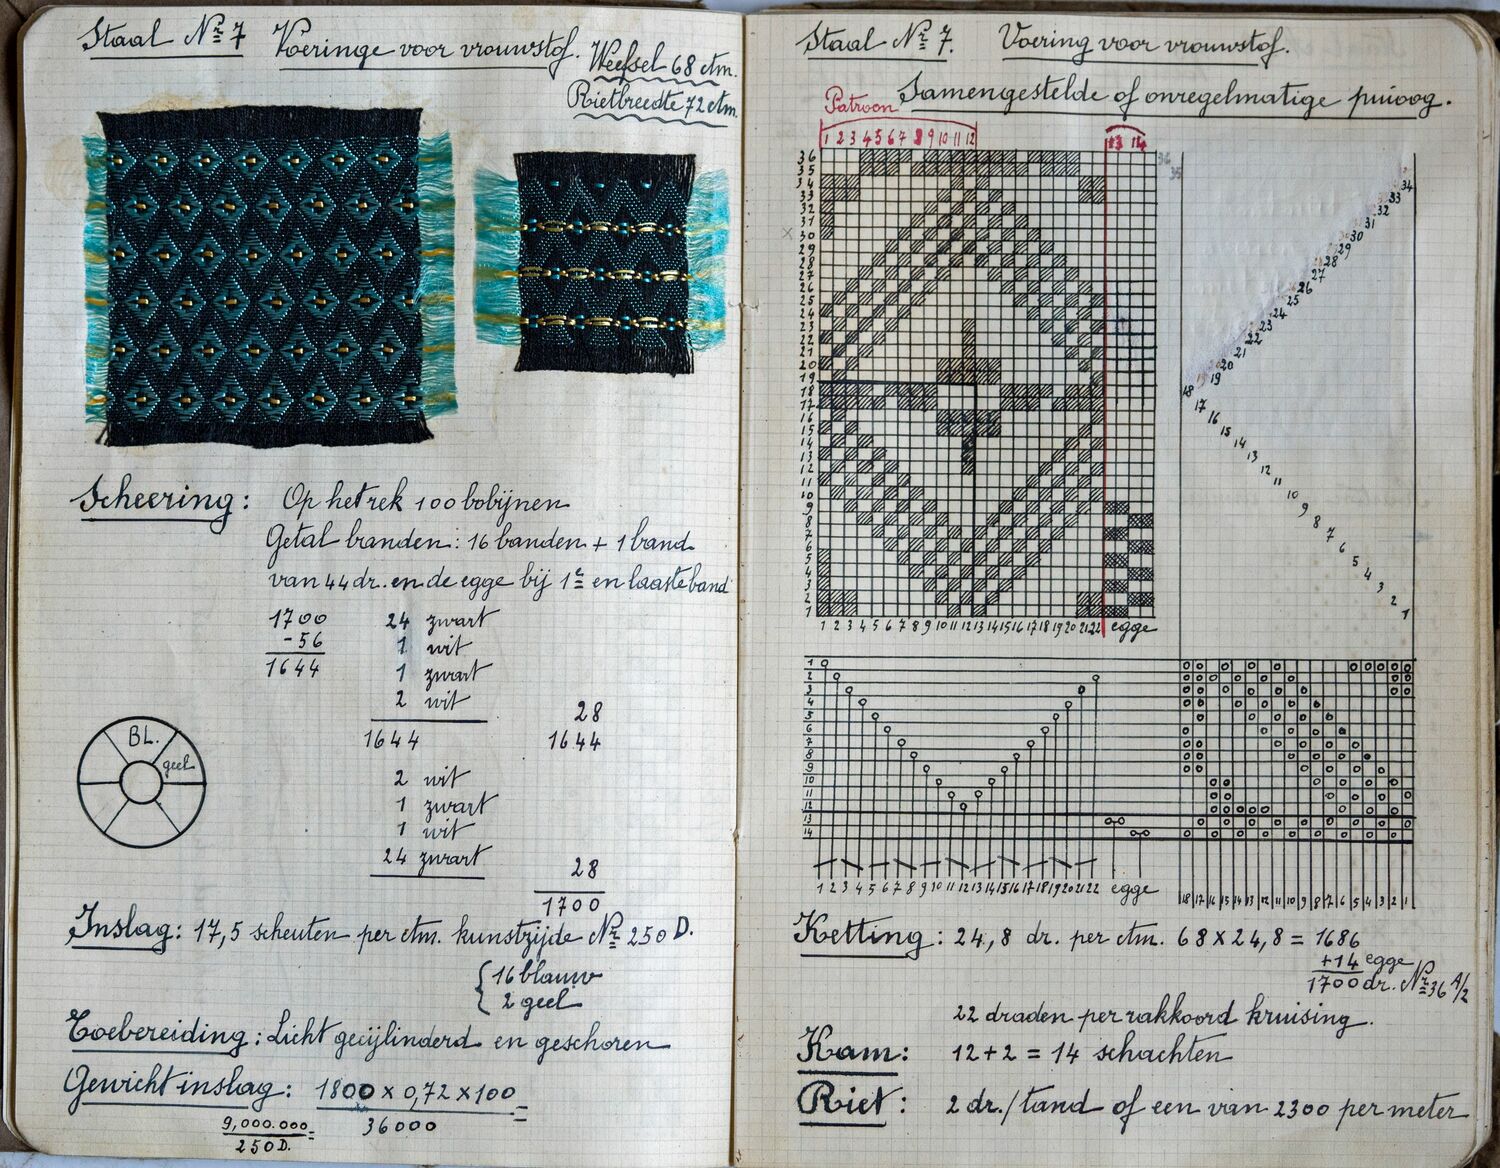 Staal Nr 7 Voeringe voor vrouwstof.
Weefsel 68 ctm.
Rietbreedte 72 ctm.
Scheering: Op het rek 100 bobijnen
Getal banden: 16 banden + 1 band
van 44 dr. en de egge bij 1e en laaste band
1700 24 zwart
-56 1 wit
1644 1 zwart
2 wit 28
1644 1644
2 wit
1 zwart
1 wit
24 zwart 28
1700
BL.
geel
Inslag: 17,5 scheuten per ctm. kunstzijde Nr 250 D.
{16 blauw
2 geel
Toebereiding: Licht gecijlinderd en geschoren
Gewicht inslag: 1800 x 0,72 x 100 =
9,000.000 = 36000
250 D.
Staal Nr 7. Voering voor vrouwstof.
Samengestelde of onregelmatige
Patroon
1 2 3 4 5 6 7 8 9 10 11 12 13 14
36
35
34
33
32
31
30
29
28
27
26
25
24
23
22
21
20
19
18
17
16
15
14
13
12
11
10
9
8
7
6
5
4
3
2
1
1 2 3 4 5 6 7 8 9 10 11 12 13 14 15 16 17 18 19 20 21 22 egge
36
35
34
33
32
31
30
29
28
27
26
25
24
23
22
21
20
19
18
17
16
15
14
13
12
11
10
9
8
7
6
5
4
3
2
1
1
2
3
4
5
6
7
8
9
10
11
12
13
14
1 2 3 4 5 6 7 8 9 10 11 12 13 14 15 16 17 18 19 20 21 22 egge
18 17 16 15 14 13 12 11 10 9 8 7 6 5 4 3 2 1
Ketting: 24,8 dr. per ctm. 68 x 24,8 = 1686
+14 egge
1700 dr. Nr 36 A/2
22 draden per rakkoord kruising.
Kam: 12 + 2 = 14 schachten
Riet: 2 dr./tand of een van 2300 per meter